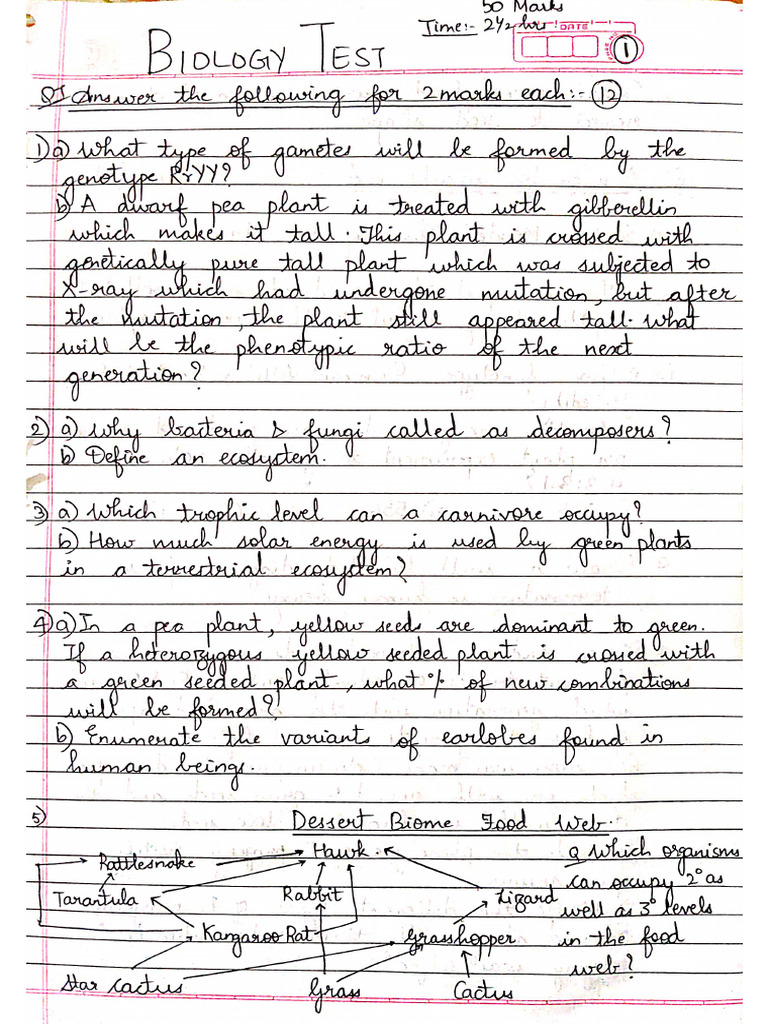 50 Marks
Time:- 2 1/2 hrs
DATE
1
BIOLOGY TEST
Q1 Answer the following for 2 marks each:- 12
1) a) What type of gametes will be formed by the
genotype RrYY?
b) A dwarf pea plant is treated with gibberellin
which makes it tall. This plant is crossed with
genetically pure tall plant which was subjected to
X-ray which had undergone mutation, but after
the mutation, the plant still appeared tall. What
will be the phenotypic ratio of the next
generation?
2) a) Why bacteria & fungi called as decomposers?
b) Define an ecosystem.
3) a) Which trophic level can a carnivore occupy?
b) How much solar energy is used by green plants
in a terrestrial ecosystem?
4) a) In a pea plant, yellow seeds are dominant to green.
If a heterozygous yellow seeded plant is crossed with
a green seeded plant, what % of new combinations
will be formed?
b) Enumerate the variants of earlobes found in
human beings.
5) Dessert Biome Food Web.
Rattlesnake Hawk.
Tarantula Rabbit Lizard
Kangaroo Rat Grasshopper
Star cactus Grass Cactus
Q Which organisms
can occupy 2° as
well as 3° levels
in the food
web?